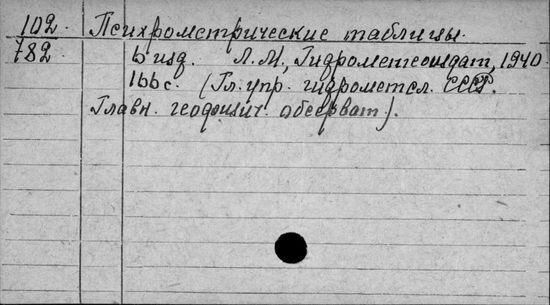 102. Психрометрические таблицы.
782. 6 изд. Л.М., Гидрометеоиздат, 1940.
166 с. (Гл. упр. гидрометсл. СССР.
Главн. геофизич. обсерват.).